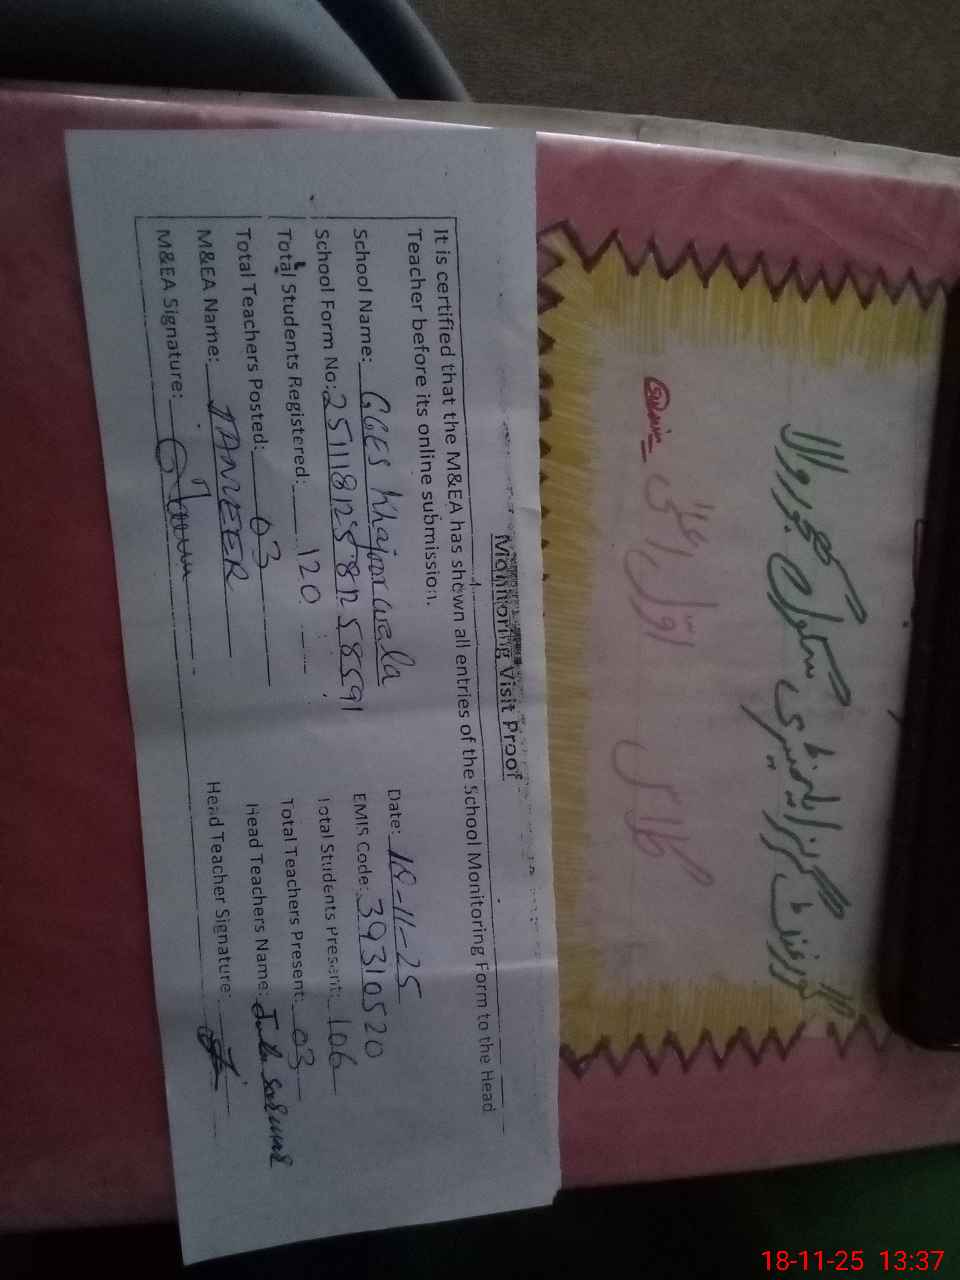 گورنمنٹ گرلز ایلیمنٹری سکول کھجور والا
کلاس اوّل، اعلیٰ
Monitoring Visit Proof
It is certified that the M&EA has shown all entries of the School Monitoring Form to the Head
Teacher before its online submission.
School Name: GGES Khajoorwala Date: 18-11-25
School Form No: 25111812581258591 EMIS Code: 39310520
Total Students Registered: 120 Total Students Present: 106
Total Teachers Posted: 03 Total Teachers Present: 03
M&EA Name: TANVEER Head Teachers Name:
M&EA Signature: Head Teacher Signature:
18-11-25 13:37